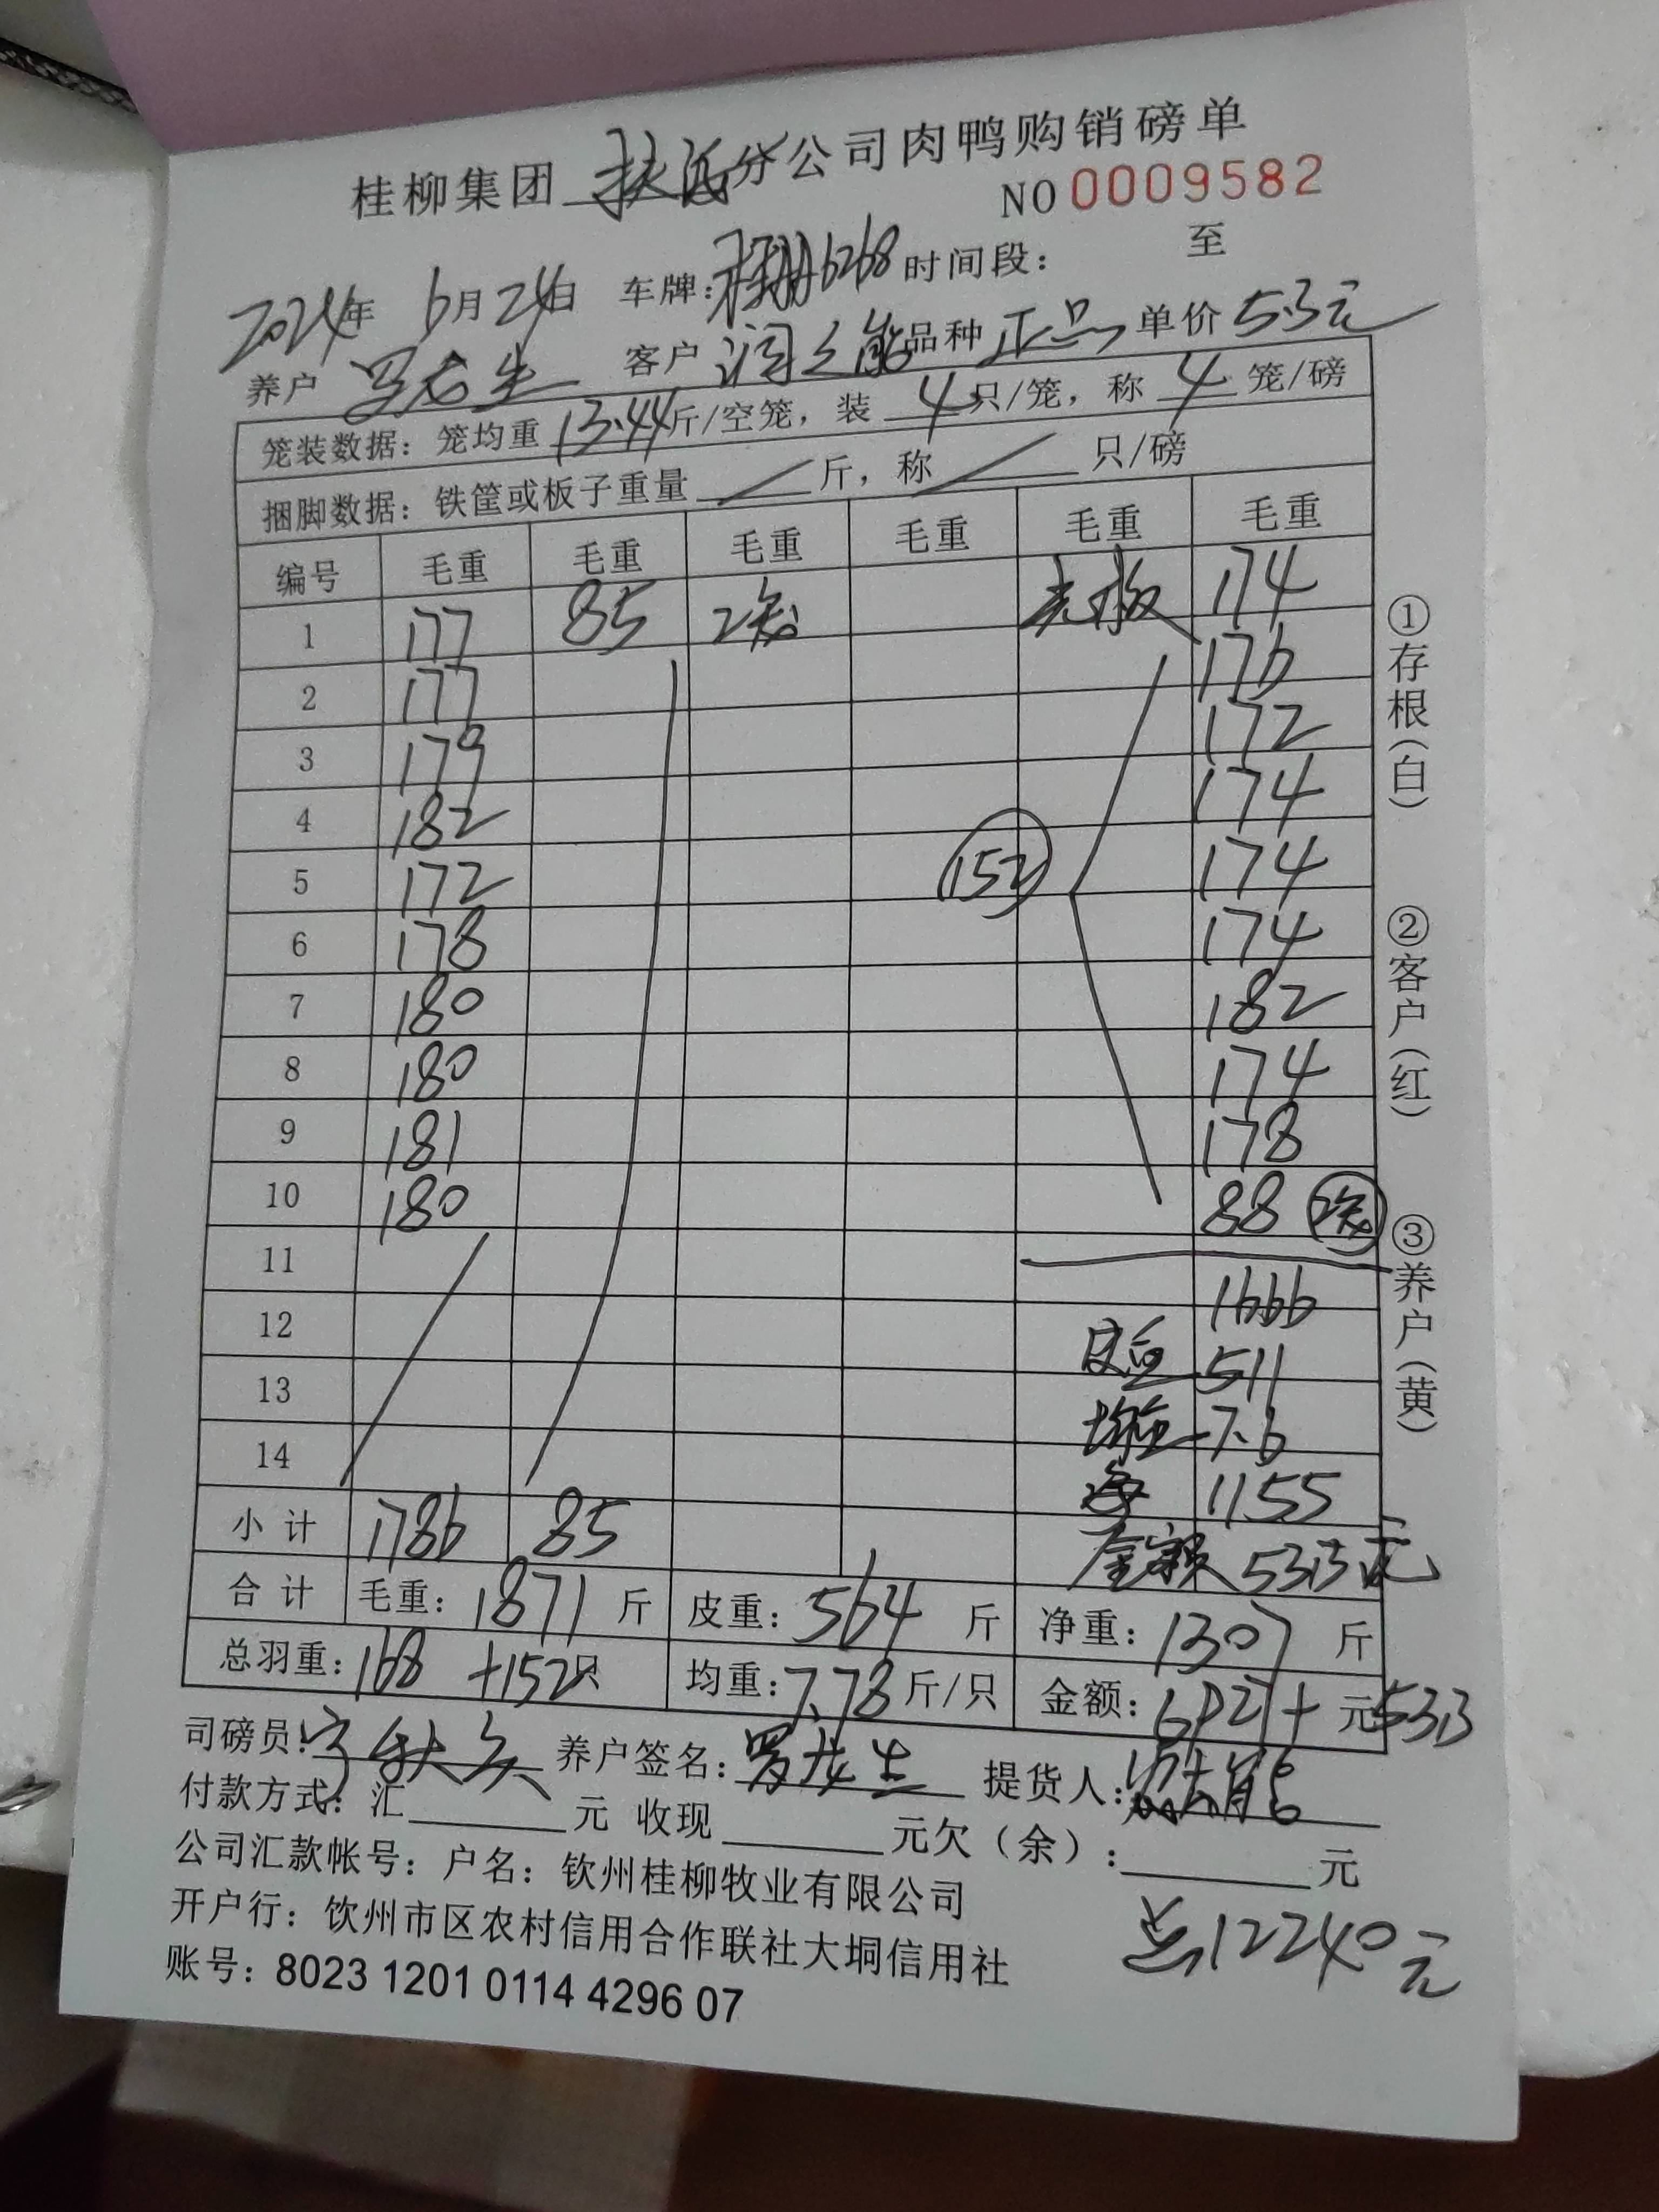 桂柳集团 扶 分公司肉鸭购销磅单
NO 0009582
2024年 6月24日 车牌: 6268 时间段: 至
养户 罗龙生 客户 品种 正品 单价 5.3元
笼装数据: 笼均重 13.44斤/空笼, 装 4只/笼, 称 4 笼/磅
捆脚数据: 铁筐或板子重量 斤, 称 只/磅
编号 毛重 毛重 毛重 毛重 毛重 毛重
1 177 85 2笼 174
2 177 176
3 179 172
4 182 174
5 172 152 174
6 178 174
7 180 182
8 180 174
9 181 178
10 180 88 2笼
11 1666
12 皮重 511
13 均重 7.6
14 净 1155
小计 1786 85 金额 5313元
合计 毛重: 1871 斤 皮重: 564 斤 净重: 1307 斤
总羽重: 168 +152只 均重: 7.78斤/只 金额: 6927+ 元5313
司磅员: 养户签名: 罗龙生 提货人:
付款方式: 汇 元 收现 元欠(余): 元
公司汇款帐号: 户名: 钦州桂柳牧业有限公司
开户行: 饮州市区农村信用合作联社大垌信用社
账号: 8023 1201 0114 4296 07
总12240元
①存根(白)
②客户(红)
③养户(黄)